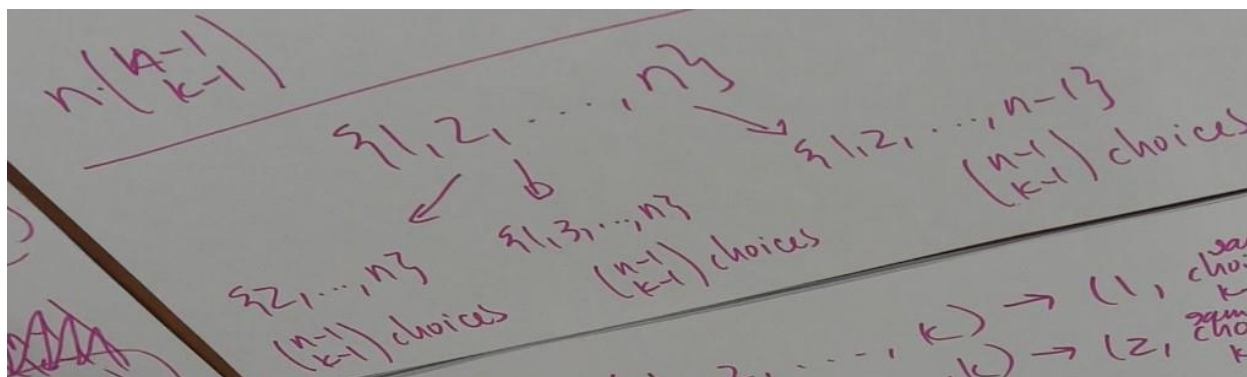 n·(n-1 k-1)
{1, 2, ..., n}
{2, ..., n}
(n-1 k-1) choices
{1, 3, ..., n}
(n-1 k-1) choices
{1, 2, ..., n-1}
(n-1 k-1) choices
..., k) → (1,
k) → (2,